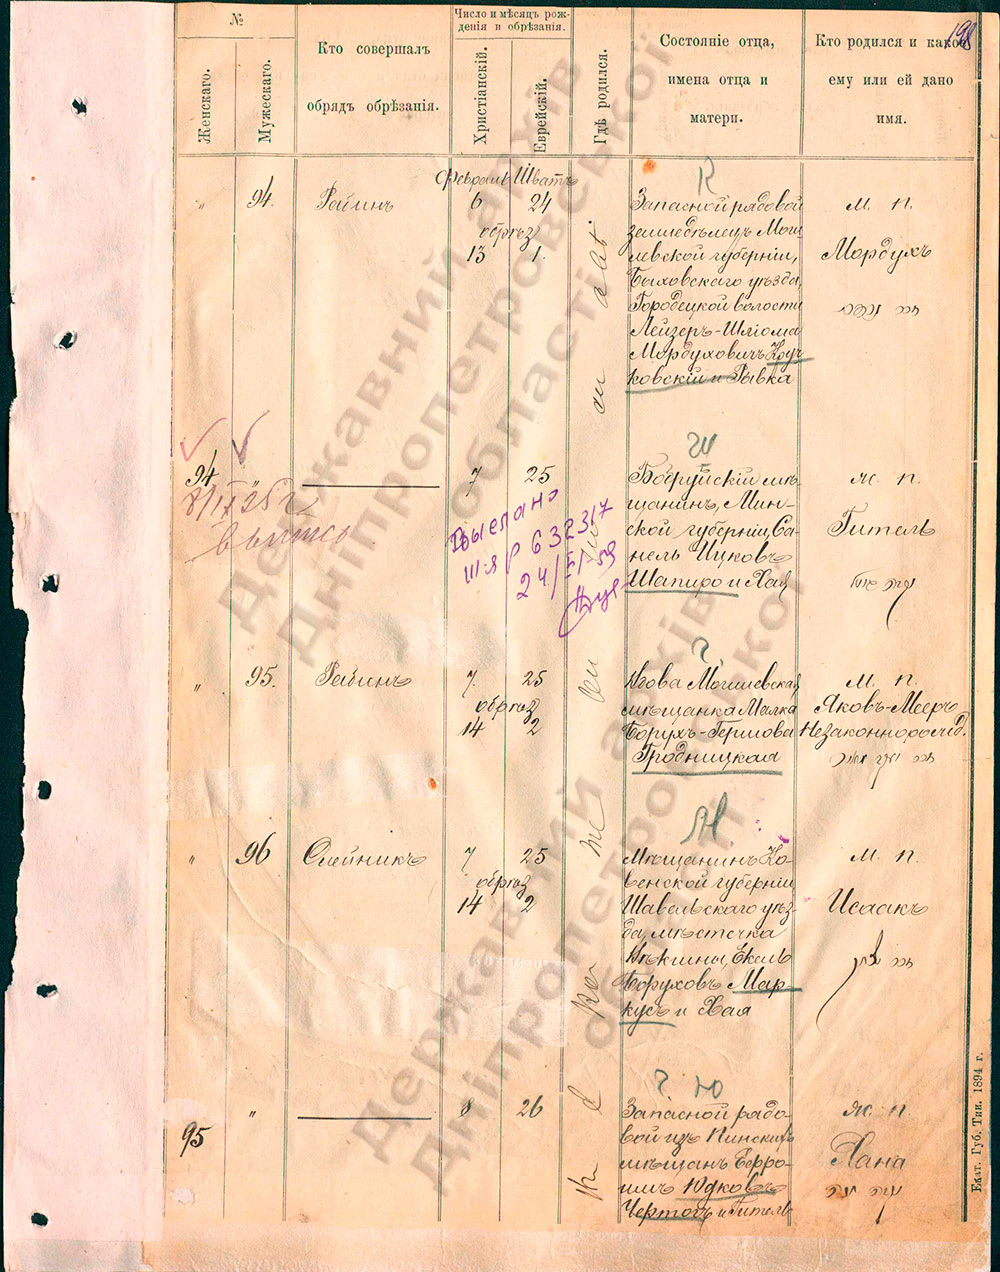 198
№
Женскаго.
Мужескаго.
Кто совершалъ
обрядъ обрѣзанія.
Число и мѣсяцъ рож-
денія и обрѣзанія.
Христіанскій.
Еврейскій.
Гдѣ родился.
Состояніе отца,
имена отца и
матери.
Кто родился и какое
ему или ей дано
имя.
Февраль Шватъ
„ 94. Раҍинъ 6 24
обрѣз
13 1.
Запасной рядовой
землед​ѣлецъ Моги
левской губерніи,
Быховскаго уѣзда,
Городецкой волости
Лейзеръ-Шліома
Мордуховичъ Круч
ковскій и Рывка
м. п.
Мордухъ
94 „ 7 25
Бобруйскій мѣ
щанинъ, Мин-
ской губерніи, Са-
нель Ицковъ
Шапиро и Хая
ж. п.
Гитель
Выслано
632317
„ 95. 7 25
обрѣз
14 2
Вдова Могилевская
мѣщанка Малка
Борухъ-Гершова
Гродницкая
м. п.
Яковъ-Мееръ
Незаконнорожд.
„ 96 Олейникъ 7 25
обрѣз
14 2
Мѣщанинъ Ко-
венской губерніи
Шавельскаго уѣз-
да, мѣстечка
Екель
Боруховъ Мар-
кусъ и Хая
м. п.
Исаакъ
95 „ 8 26
Запасной рядо-
вой изъ Пинскихъ
мѣщанъ Ефро-
имъ Юдковъ
Чертокъ и Гитель
ж. п.
Хана
Екат. Губ. Тип. 1894 г.
Державний архів
Дніпропетровської
області
Державний архів
Дніпропетровської
області